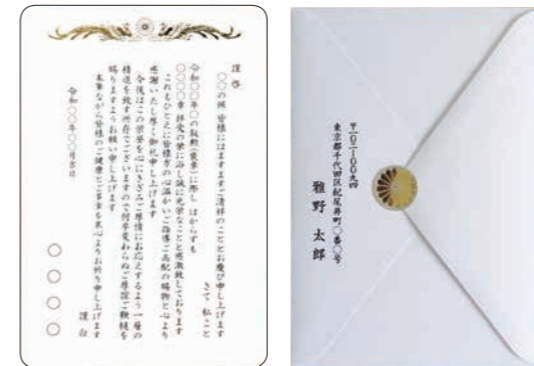 謹啓
○○の候 皆様にはますますご清祥のこととお慶び申し上げます
さて 私こと
令和○○年○の叙勲(褒章)に際し はからずも
○○○○章 拝受の栄に浴し誠に光栄なことと感激致しております
これもひとえに皆様方の心温かいご指導ご高配の賜物と心より
感謝いたし厚く御礼申し上げます
今後はこの栄誉を心にきざみご厚情にお応えするよう一層の
精進を致す所存でございますので何卒変わらぬご厚誼ご鞭撻を
賜りますようお願い申し上げます
末筆ながら皆様のご健康とご多幸を衷心よりお祈り申し上げます
謹白
令和○○年○○月吉日
○○○○
〒一〇二-〇〇九四
東京都千代田区紀尾井町○番○号
雅野 太郎